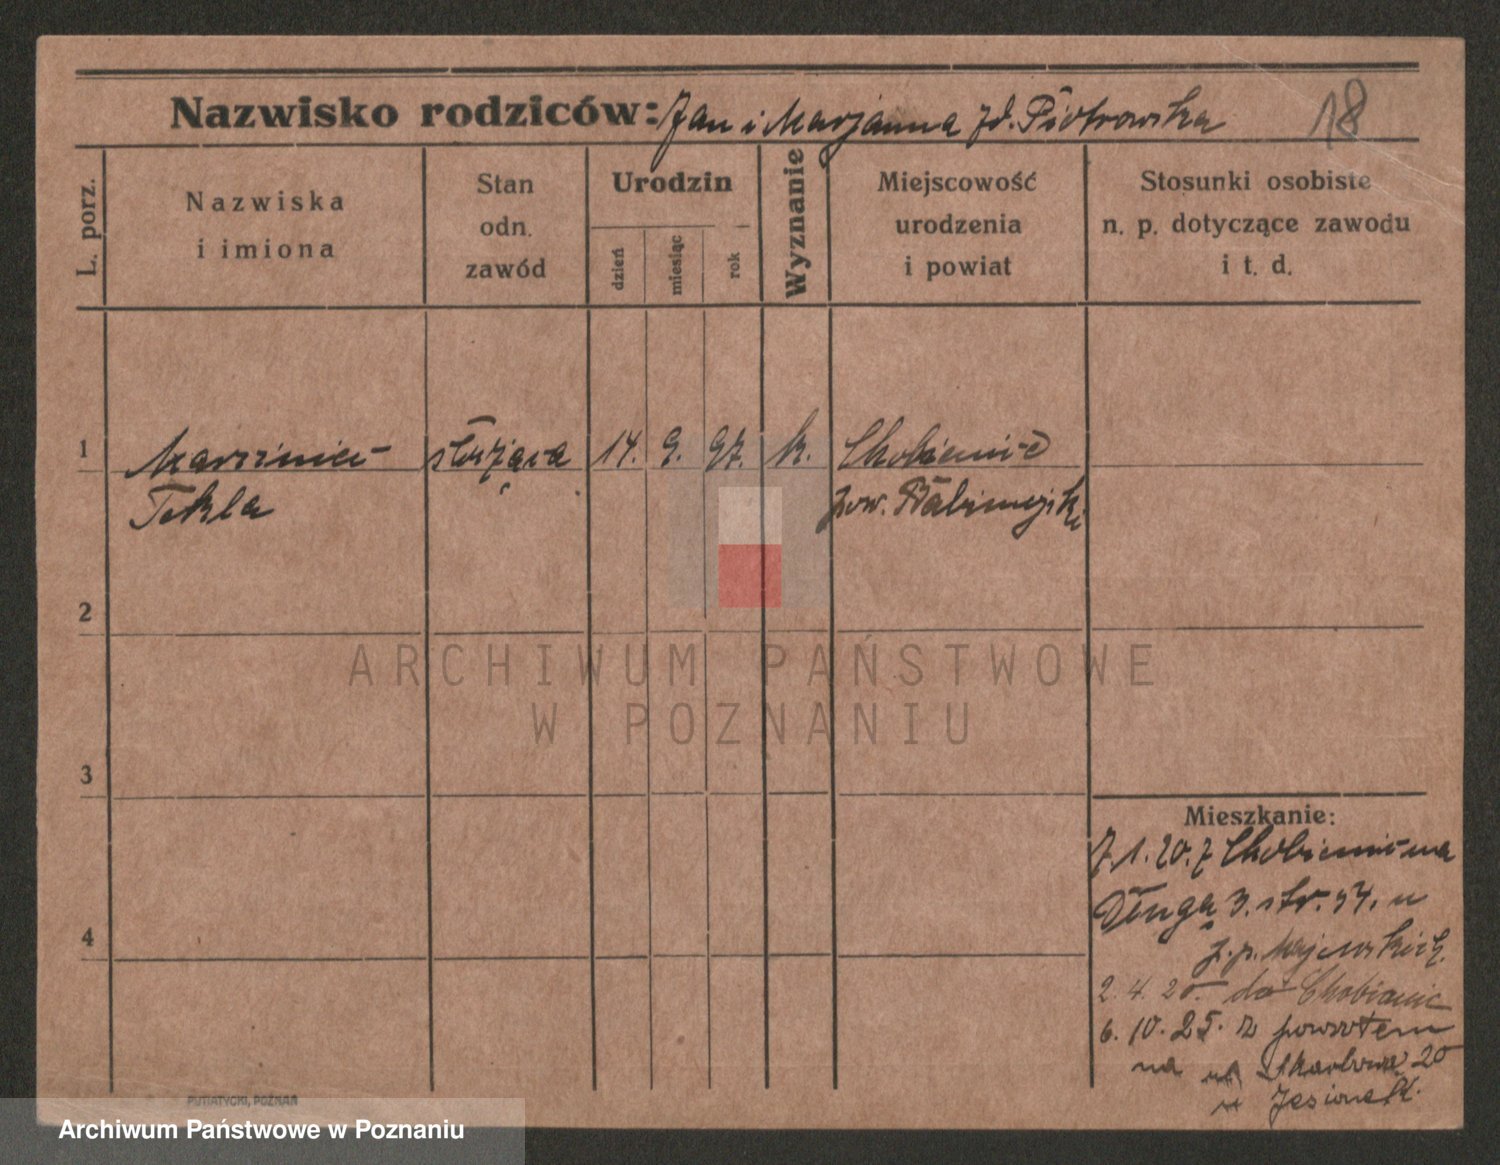 Nazwisko rodziców: Jan i Marjanna zd. Piotrowska 18
L. porz.
Nazwiska
i imiona
Stan
odn.
zawód
Urodzin
dzień
miesiąc
rok
Wyznanie
Miejscowość
urodzenia
i powiat
Stosunki osobiste
n. p. dotyczące zawodu
i t. d.
1 Marciniec służąca 14. 9. 97. k. Chobienice
Tekla pow. Babimojski
2
ARCHIWUM PAŃSTWOWE
W POZNANIU
3
Mieszkanie:
7.1.20. z Chobienic na
Długą 3. str. 54. u
p. Majewskich.
4
2.4.20. do Chobienic
6.10.25. z powrotem
na Skarbową 20
Jasionek.
PUTIATYCKI, POZNAŃ
Archiwum Państwowe w Poznaniu